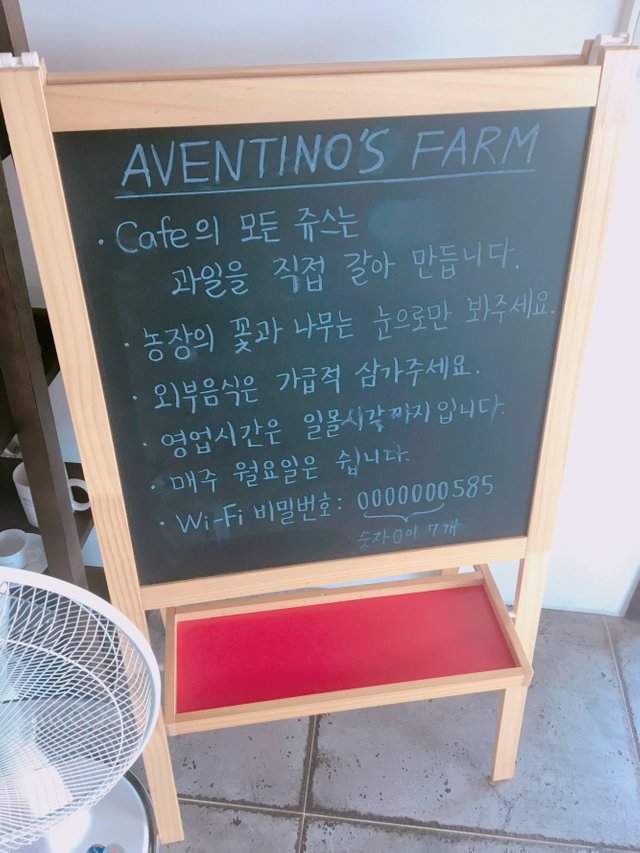 AVENTINO'S FARM
· Cafe의 모든 쥬스는
과일을 직접 갈아 만듭니다.
· 농장의 꽃과 나무는 눈으로만 봐주세요.
· 외부음식은 가급적 삼가주세요.
· 영업시간은 일몰시각까지입니다.
· 매주 월요일은 쉽니다.
· Wi-Fi 비밀번호: 0000000585
숫자0이 7개